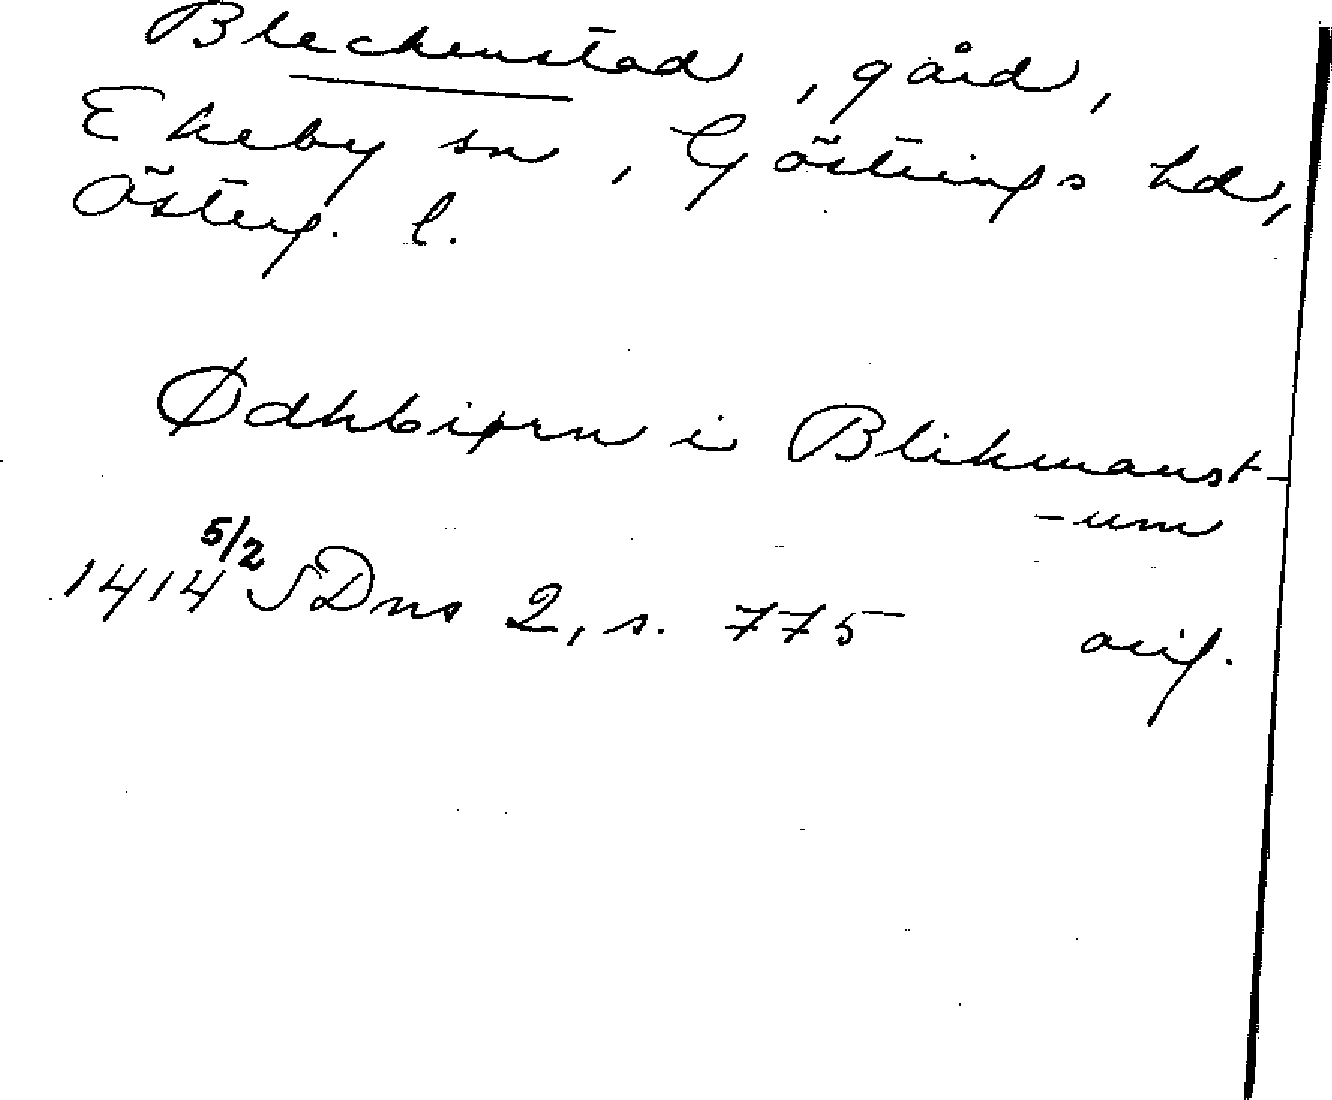 Bleckenstad, gård,
Ekeby sn, Göstrings hd,
Österg. l.
Ødhbiørn i Blikmanst-
-um
1414 5/2 SDns 2, s. 775 orig.